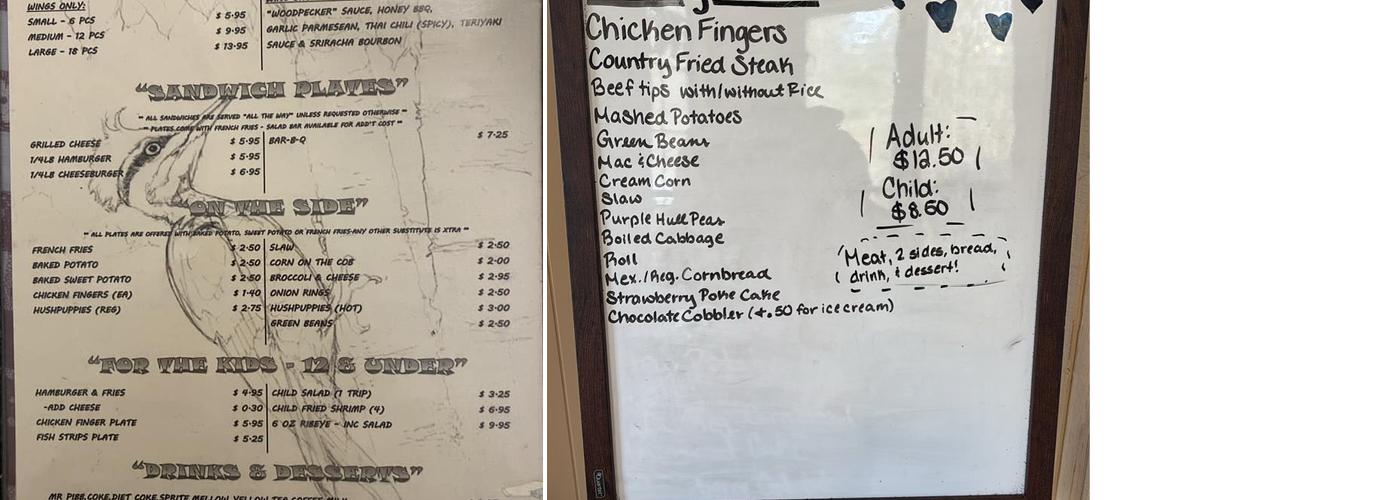 WINGS ONLY:
SMALL - 6 PCS $ 5.95
MEDIUM - 12 PCS $ 9.95
LARGE - 18 PCS $ 13.95
"WOODPECKER" SAUCE, HONEY BBQ,
GARLIC PARMESEAN, THAI CHILI (SPICY), TERIYAKI
SAUCE & SRIRACHA BOURBON
"SANDWICH PLATES"
** ALL SANDWICHES ARE SERVED "ALL THE WAY" UNLESS REQUESTED OTHERWISE **
** PLATES COME WITH FRENCH FRIES - SALAD BAR AVAILABLE FOR ADD'T COST **
GRILLED CHEESE $ 5.95
1/4LB HAMBURGER $ 5.95
1/4LB CHEESEBURGER $ 6.95
BAR-B-Q $ 7.25
"ON THE SIDE"
** ALL PLATES ARE OFFERED WITH BAKED POTATO, SWEET POTATO OR FRENCH FRIES-ANY OTHER SUBSTITUTE IS XTRA **
FRENCH FRIES $ 2.50
BAKED POTATO $ 2.50
BAKED SWEET POTATO $ 2.50
CHICKEN FINGERS (EA) $ 1.40
HUSHPUPPIES (REG) $ 2.75
SLAW $ 2.50
CORN ON THE COB $ 2.00
BROCCOLI & CHEESE $ 2.95
ONION RINGS $ 2.50
HUSHPUPPIES (HOT) $ 3.00
GREEN BEANS $ 2.50
"FOR THE KIDS - 12 & UNDER"
HAMBURGER & FRIES $ 4.95
-ADD CHEESE $ 0.30
CHICKEN FINGER PLATE $ 5.95
FISH STRIPS PLATE $ 5.25
CHILD SALAD (1 TRIP) $ 3.25
CHILD FRIED SHRIMP (4) $ 6.95
6 OZ RIBEYE - INC SALAD $ 9.95
"DRINKS & DESSERTS"
MR PIBB, COKE, DIET COKE, SPRITE, MELLOW YELLOW, TEA, COFFEE, MILK
Chicken Fingers
Country Fried Steak
Beef tips with/without Rice
Mashed Potatoes
Green Beans
Mac & Cheese
Cream Corn
Slaw
Purple Hull Peas
Boiled Cabbage
Roll
Mex./Reg. Cornbread
Strawberry Poke Cake
Chocolate Cobbler (+.50 for ice cream)
Adult:
$12.50
Child:
$8.50
Meat, 2 sides, bread,
drink, & dessert!
Quartet